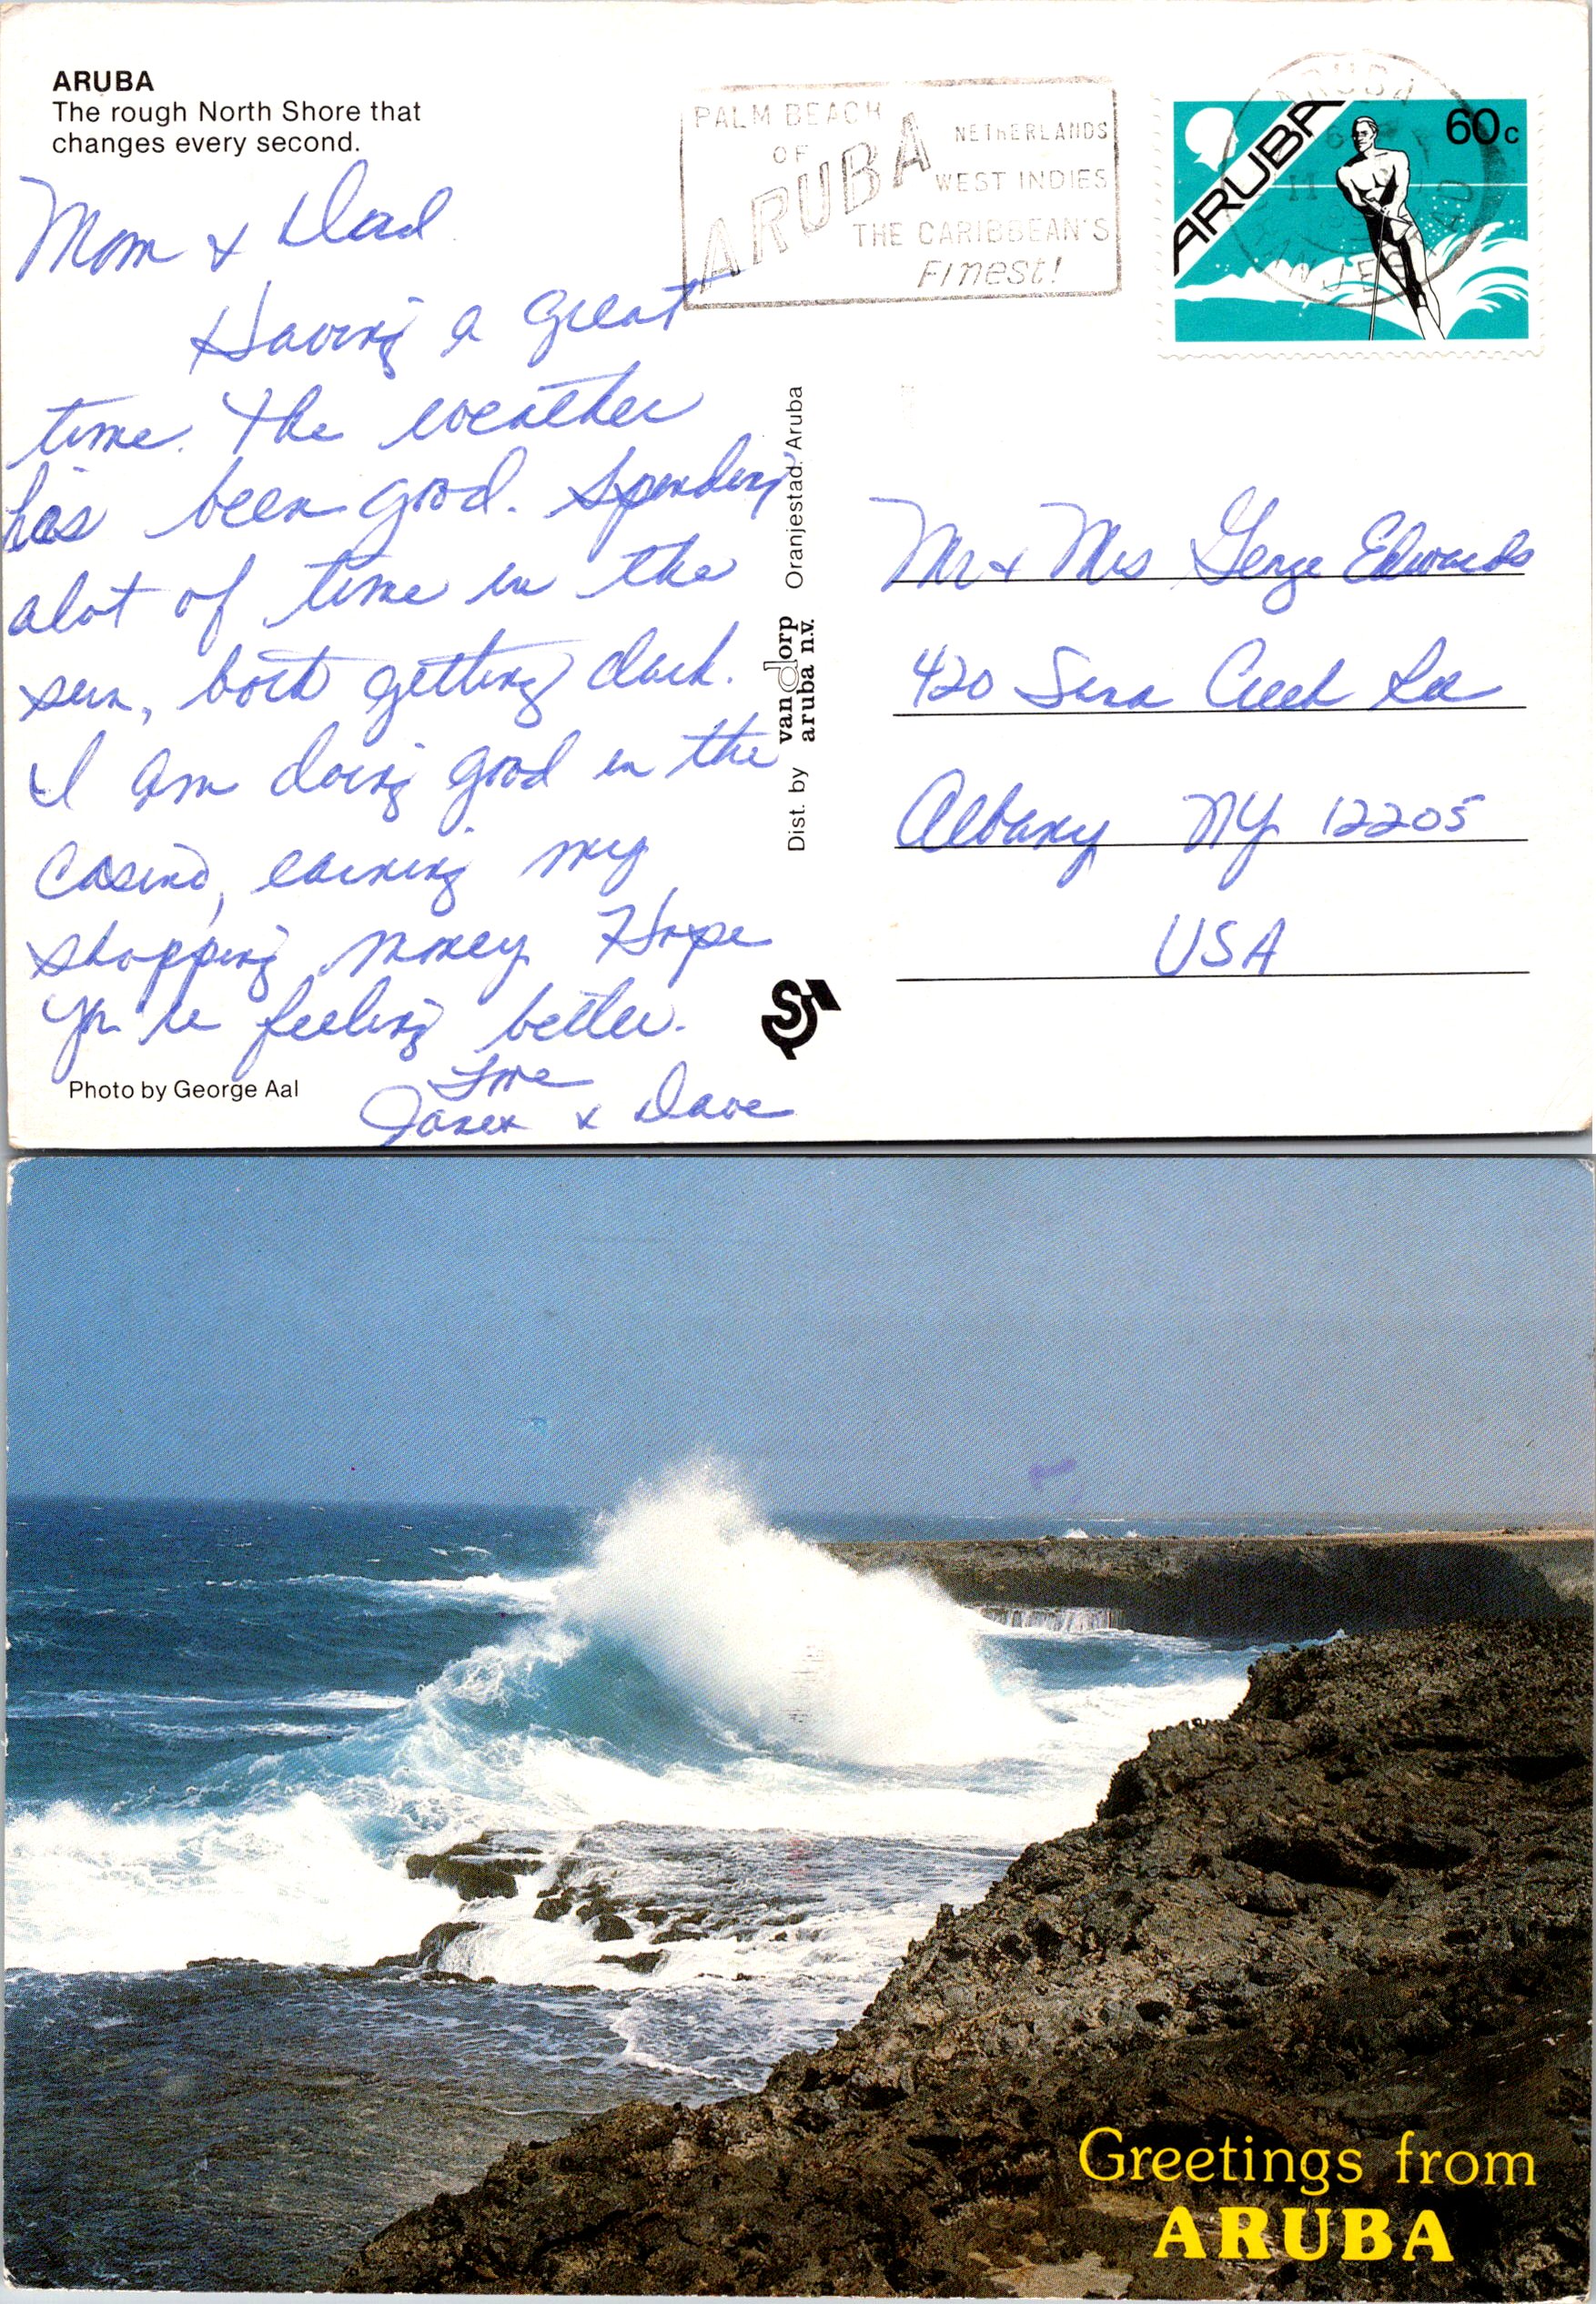 ARUBA
The rough North Shore that
changes every second.
PALM BEACH
OF
ARUBA
NETHERLANDS
WEST INDIES
THE CARIBBEAN'S
Finest!
ARUBA
60c
ARUBA
11
Mom & Dad
Having a great
time. The weather
has been good. Spending
alot of time in the
sun, both getting dark.
I am doing good in the
Casino, earning my
shopping money. Hope
you're feeling better.
Love
Janet & Dave
Photo by George Aal
Dist. by van dorp aruba n.v. Oranjestad. Aruba
Mr & Mrs George Edwards
420 Creek Rd
Albany NY 12205
USA
Greetings from
ARUBA